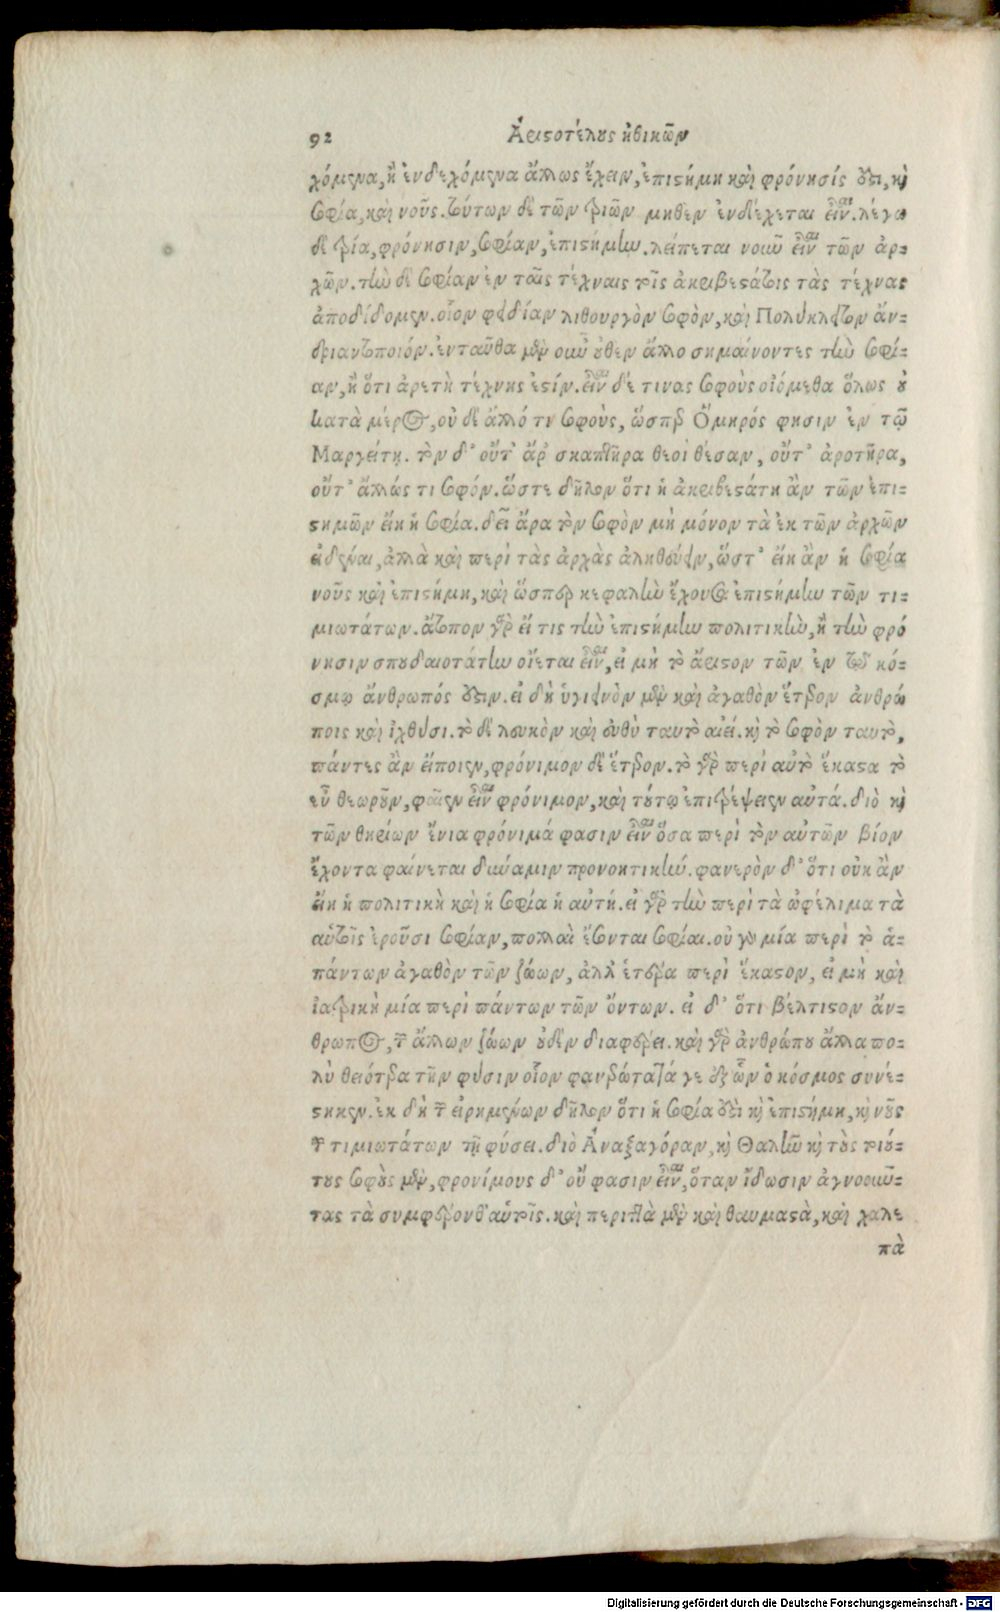 92 Ἀριστοτέλους ἠθικῶν
χόμενα, ἢ ἐνδεχόμενα ἄλλως ἔχειν, ἐπιστήμη καὶ φρόνησίς ἐστι, καὶ
σοφία, καὶ νοῦς. τούτων δὲ τῶν τριῶν μηθὲν ἐνδέχεται εἶναι. λέγω
δὲ τρία, φρόνησιν, σοφίαν, ἐπιστήμην. λείπεται νοῦν εἶναι τῶν ἀρ-
χῶν. τὴν δὲ σοφίαν ἐν ταῖς τέχναις τοῖς ἀκριβεστάτοις τὰς τέχνας
ἀποδίδομεν. οἷον φειδίαν λιθουργὸν σοφὸν, καὶ Πολύκλειτον ἀν-
δριαντοποιόν. ἐνταῦθα μὲν οὖν οὐθὲν ἄλλο σημαίνοντες τὴν σοφί-
αν, ἢ ὅτι ἀρετὴ τέχνης ἐστίν. εἶναι δέ τινας σοφοὺς οἰόμεθα ὅλως οὐ
κατὰ μέρος, οὐδὲ ἄλλό τι σοφοὺς, ὥσπερ Ὅμηρός φησιν ἐν τῷ
Μαργείτῃ. τὸν δ' οὔτ' ἂρ σκαπτῆρα θεοὶ θέσαν, οὔτ' ἀροτῆρα,
οὔτ' ἄλλώς τι σοφόν. ὥστε δῆλον ὅτι ἡ ἀκριβεστάτη ἂν τῶν ἐπι-
στημῶν εἴη ἡ σοφία. δεῖ ἄρα τὸν σοφὸν μὴ μόνον τὰ ἐκ τῶν ἀρχῶν
εἰδέναι, ἀλλὰ καὶ περὶ τὰς ἀρχὰς ἀληθεύειν, ὥστ' εἴη ἂν ἡ σοφία
νοῦς καὶ ἐπιστήμη, καὶ ὥσπερ κεφαλὴν ἔχουσα ἐπιστήμην τῶν τι-
μιωτάτων. ἄτοπον γὰρ εἴ τις τὴν ἐπιστήμην πολιτικὴν, ἢ τὴν φρό
νησιν σπουδαιοτάτην οἴεται εἶναι, εἰ μὴ τὸ ἄριστον τῶν ἐν τῷ κό-
σμῳ ἄνθρωπός ἐστιν. εἰ δὴ ὑγιεινὸν μὲν καὶ ἀγαθὸν ἕτερον ἀνθρώ
ποις καὶ ἰχθύσι. τὸ δὲ λευκὸν καὶ εὐθὺ ταυτὸ αἰεί. καὶ τὸ σοφὸν ταυτὸ,
πάντες ἂν εἴποιεν, φρόνιμον δὲ ἕτερον. τὸ γὰρ περὶ αὑτὸ ἕκαστα τὸ
εὖ θεωροῦν, φαῖεν εἶναι φρόνιμον, καὶ τούτῳ ἐπιτρέψειεν αὐτά. διὸ καὶ
τῶν θηρίων ἔνια φρόνιμά φασιν εἶναι ὅσα περὶ τὸν αὑτῶν βίον
ἔχοντα φαίνεται δύναμιν προνοητικήν. φανερὸν δ' ὅτι οὐκ ἂν
εἴη ἡ πολιτικὴ καὶ ἡ σοφία ἡ αὐτή. εἰ γὰρ τὴν περὶ τὰ ὠφέλιμα τὰ
αὑτοῖς ἐροῦσι σοφίαν, πολλαὶ ἔσονται σοφίαι. οὐ γὰρ μία περὶ τὸ ἁ-
πάντων ἀγαθὸν τῶν ζώων, ἀλλ' ἑτέρα περὶ ἕκαστον, εἰ μὴ καὶ
ἰατρικὴ μία περὶ πάντων τῶν ὄντων. εἰ δ' ὅτι βέλτιστον ἄν-
θρωπος, τῶν ἄλλων ζώων οὐδὲν διαφέρει. καὶ γὰρ ἀνθρώπου ἄλλα πο-
λὺ θειότερα τὴν φύσιν οἷον φανερώτατά γε ἐξ ὧν ὁ κόσμος συνέ-
στηκεν. ἐκ δὴ τῶν εἰρημένων δῆλον ὅτι ἡ σοφία ἐστὶ καὶ ἐπιστήμη, καὶ νοῦς
τῶν τιμιωτάτων τῇ φύσει. διὸ Ἀναξαγόραν, καὶ Θαλῆν καὶ τοὺς τοιού-
τους σοφοὺς μὲν, φρονίμους δ' οὔ φασιν εἶναι, ὅταν ἴδωσιν ἀγνοοῦν-
τας τὰ συμφέρονθ' αὑτοῖς. καὶ περιττὰ μὲν καὶ θαυμαστὰ, καὶ χαλε
πὰ
Digitalisierung gefördert durch die Deutsche Forschungsgemeinschaft - DFG